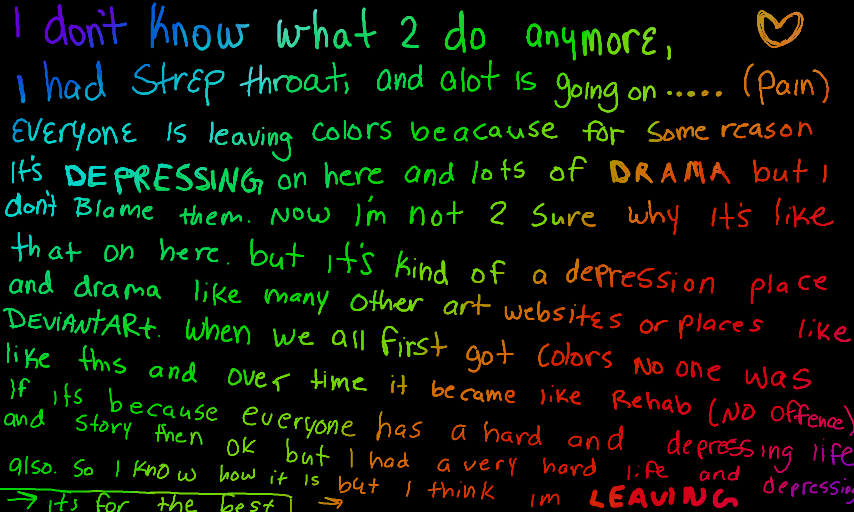 I don't know what 2 do anymore,
I had strep throat, and alot is going on ..... (Pain)
EVERYONE IS leaving colors beacause for some reason
It's DEPRESSING, on here and lots of DRAMA but I
don't Blame them. NOW I'm not 2 sure why It's like
that on here. but it's kind of a depression place
and drama like many other art websites or places like
DEVIANTARt. when we all first got Colors NO one was
like this and over time it became like Rehab (NO offence)
If its because everyone has a hard and depressing life
and story then ok but I had a very hard life and depression
also. so I know how it is but I think im LEAVING
→ its for the best →